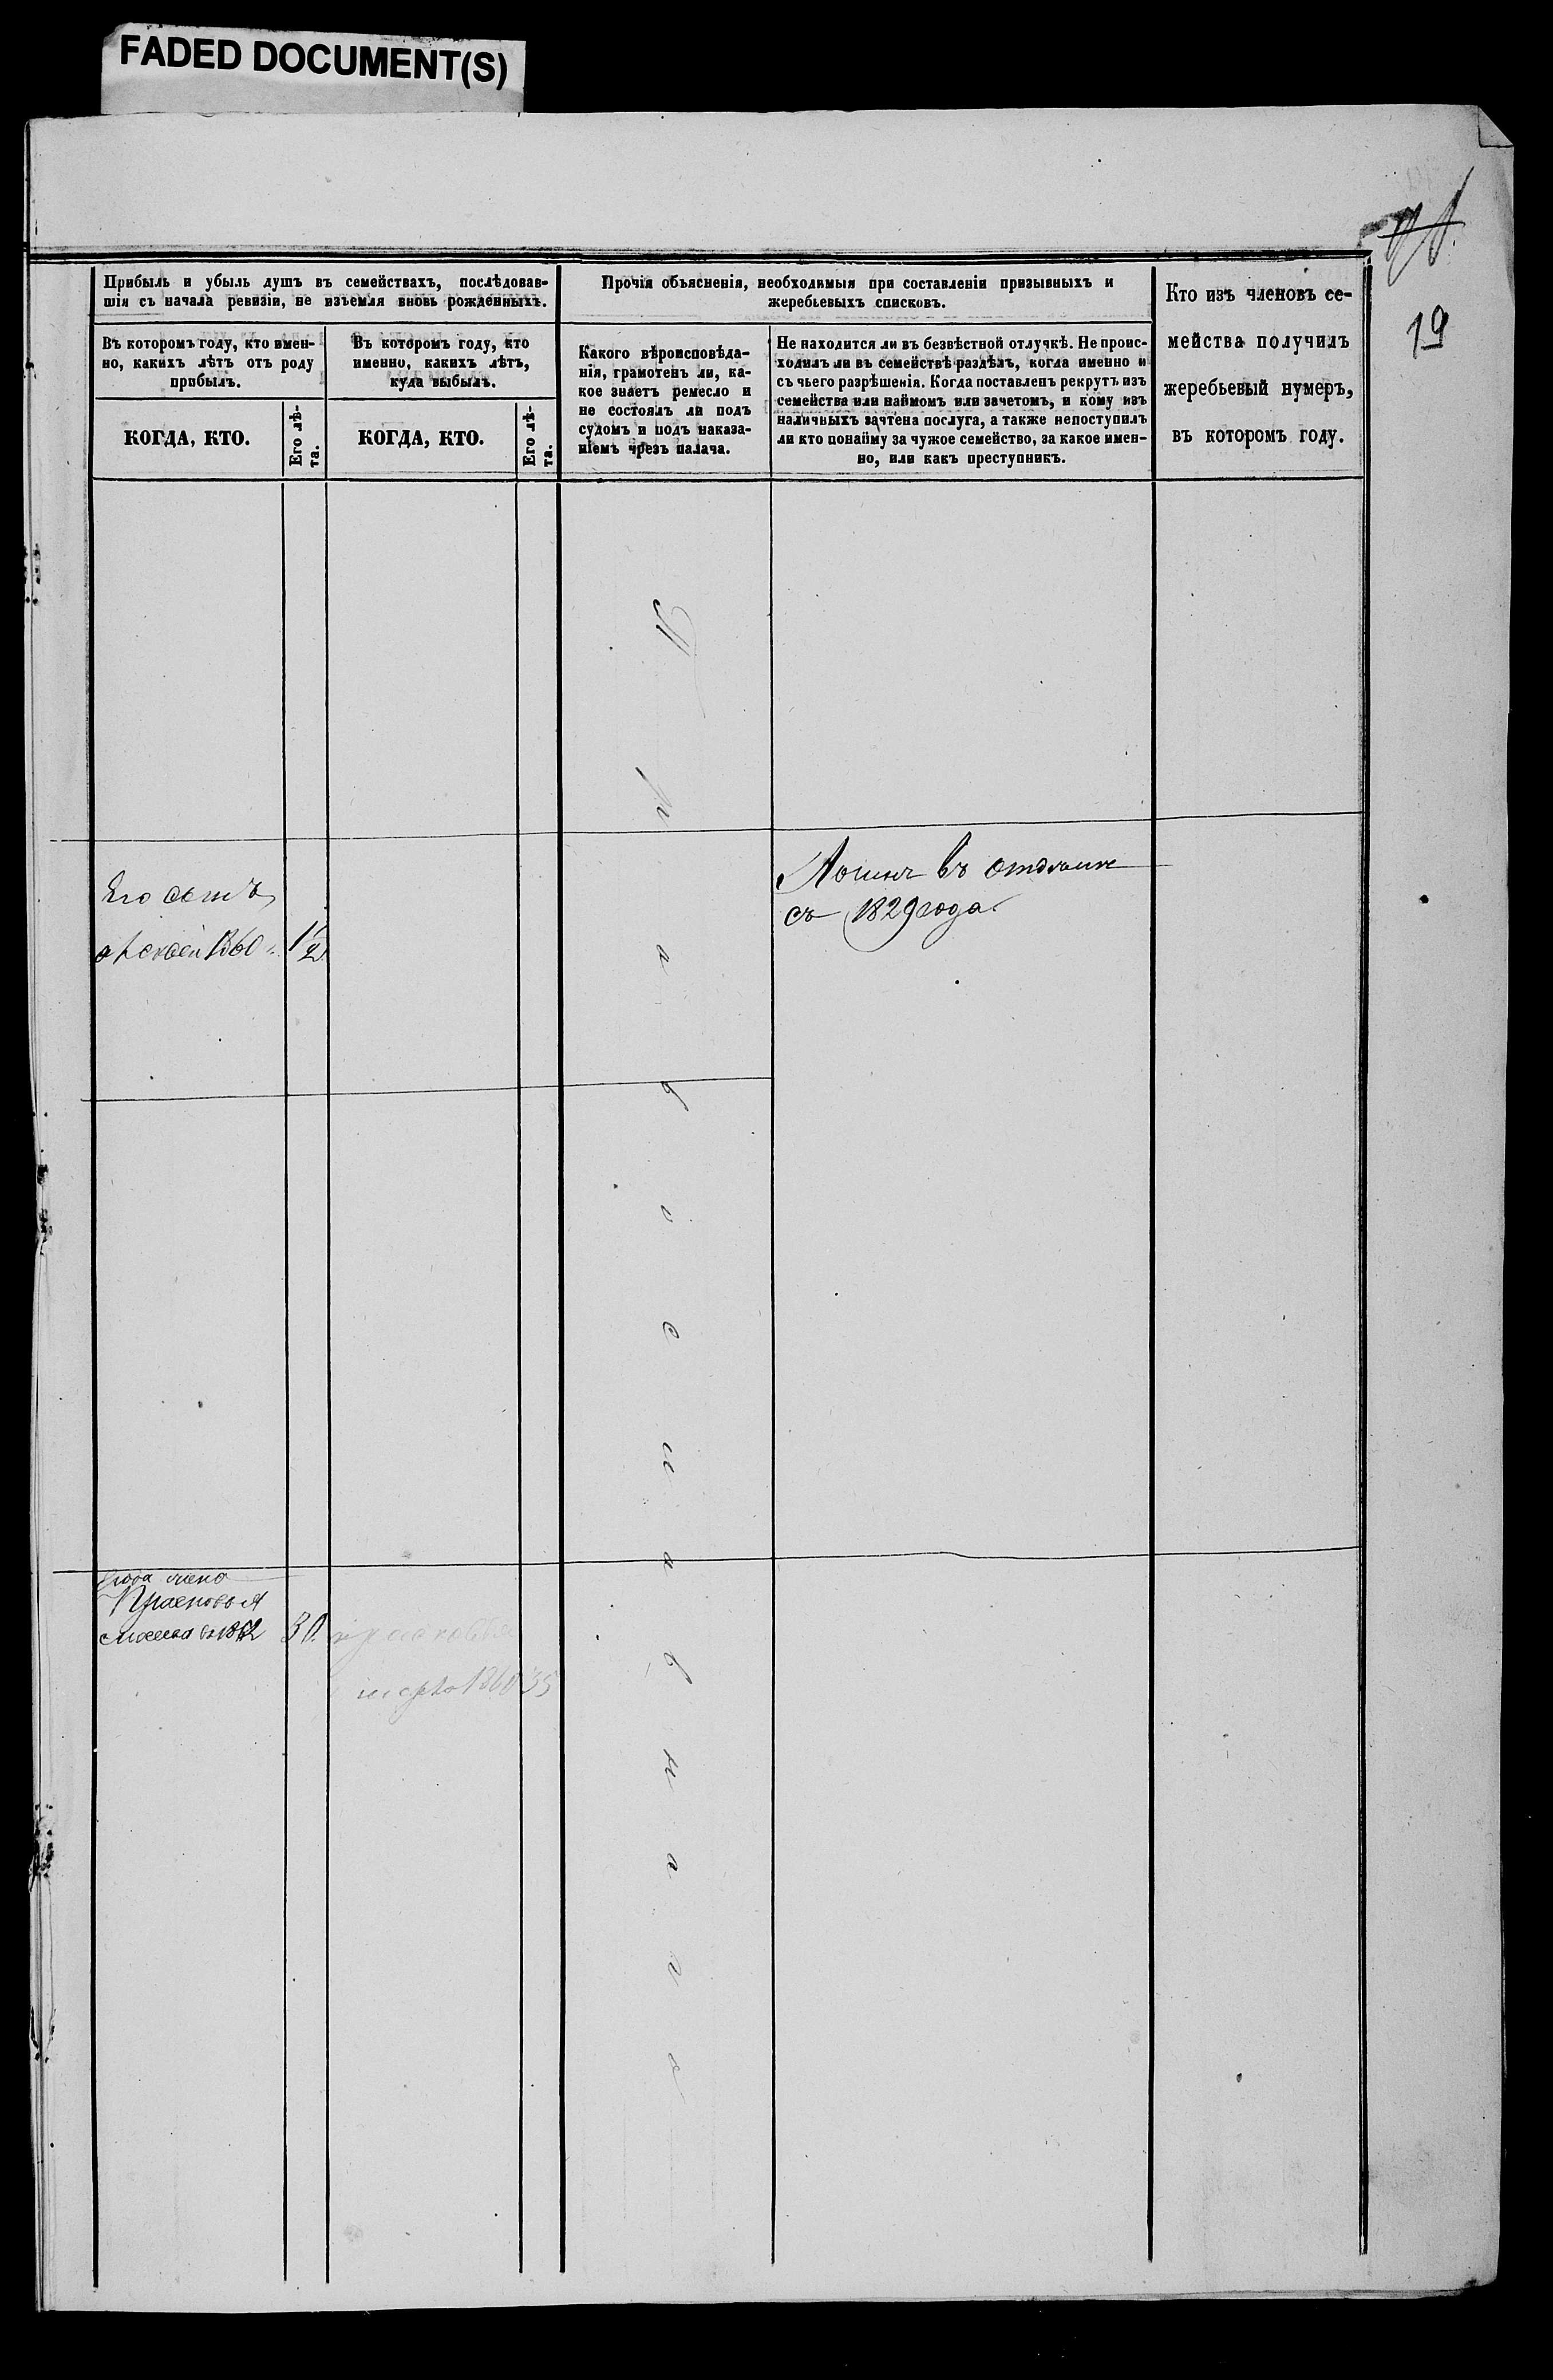 FADED DOCUMENT(S)
19
Прибыль и убыль душъ въ семействахъ, послѣдовав-
шія съ начала ревизіи, не изъемля вновь рожденныхъ.
Въ которомъ году, кто имен-
но, какихъ лѣтъ отъ роду
прибылъ.
КОГДА, КТО.
Его лѣ-
та.
Въ которомъ году, кто
именно, какихъ лѣтъ,
куда выбылъ.
КОГДА, КТО.
Его лѣ-
та.
Прочія объясненія, необходимыя при составленіи призывныхъ и
жеребьевыхъ списковъ.
Какого вѣроисповѣда-
нія, грамотенъ ли, ка-
кое знаетъ ремесло и
не состоялъ ли подъ
судомъ и подъ наказа-
ніемъ чрезъ палача.
Не находится ли въ безвѣстной отлучкѣ. Не проис-
ходилъ ли въ семействѣ раздѣлъ, когда именно и
съ чьего разрѣшенія. Когда поставленъ рекрутъ изъ
семейства или наймомъ или зачетомъ, и кому изъ
наличныхъ зачтена послуга, а также непоступилъ
ли кто понайму за чужое семейство, за какое имен-
но, или какъ преступникъ.
Кто изъ членовъ се-
мейства получилъ
жеребьевый нумеръ,
въ которомъ году.
Его сынъ
1860
1/2
въ
съ 1829 года
Православнаго
30
1860 35